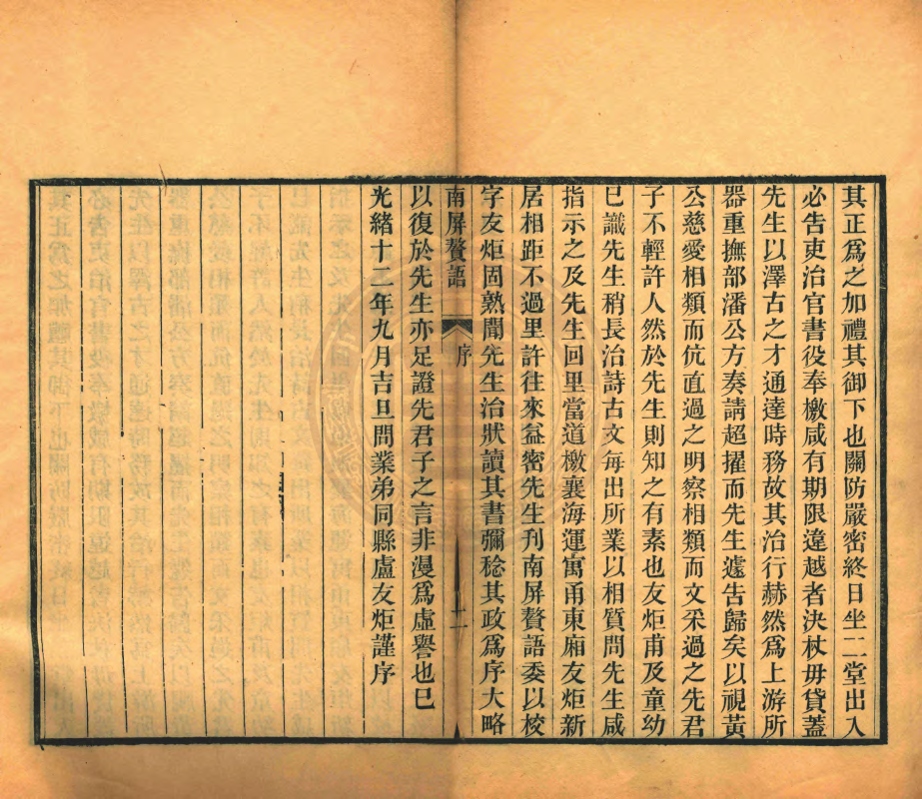 其正爲之加禮其御下也關防嚴密終日坐二堂出入
必吿吏治官書役奉檄咸有期限違越者決杖毋貸蓋
先生以澤古之才通達時務故其治行赫然爲上游所
器重撫部潘公方奏請超擢而先生遽吿歸矣以視黃
公慈愛相類而伉直過之明察相類而文采過之先君
子不輕許人然於先生則知之有素也友炬甫及童幼
已識先生稍長治詩古文每出所業以相質問先生咸
指示之及先生回里當道檄襄海運寓甬東廂友炬新
居相距不過里許往來益密先生刊南屏贅語委以校
字友炬固熟聞先生治狀讀其書彌稔其政爲序大略
南屏贅語 序 二
以復於先生亦足證先君子之言非漫爲虛譽也巳
光緒十二年九月吉旦問業弟同縣盧友炬謹序